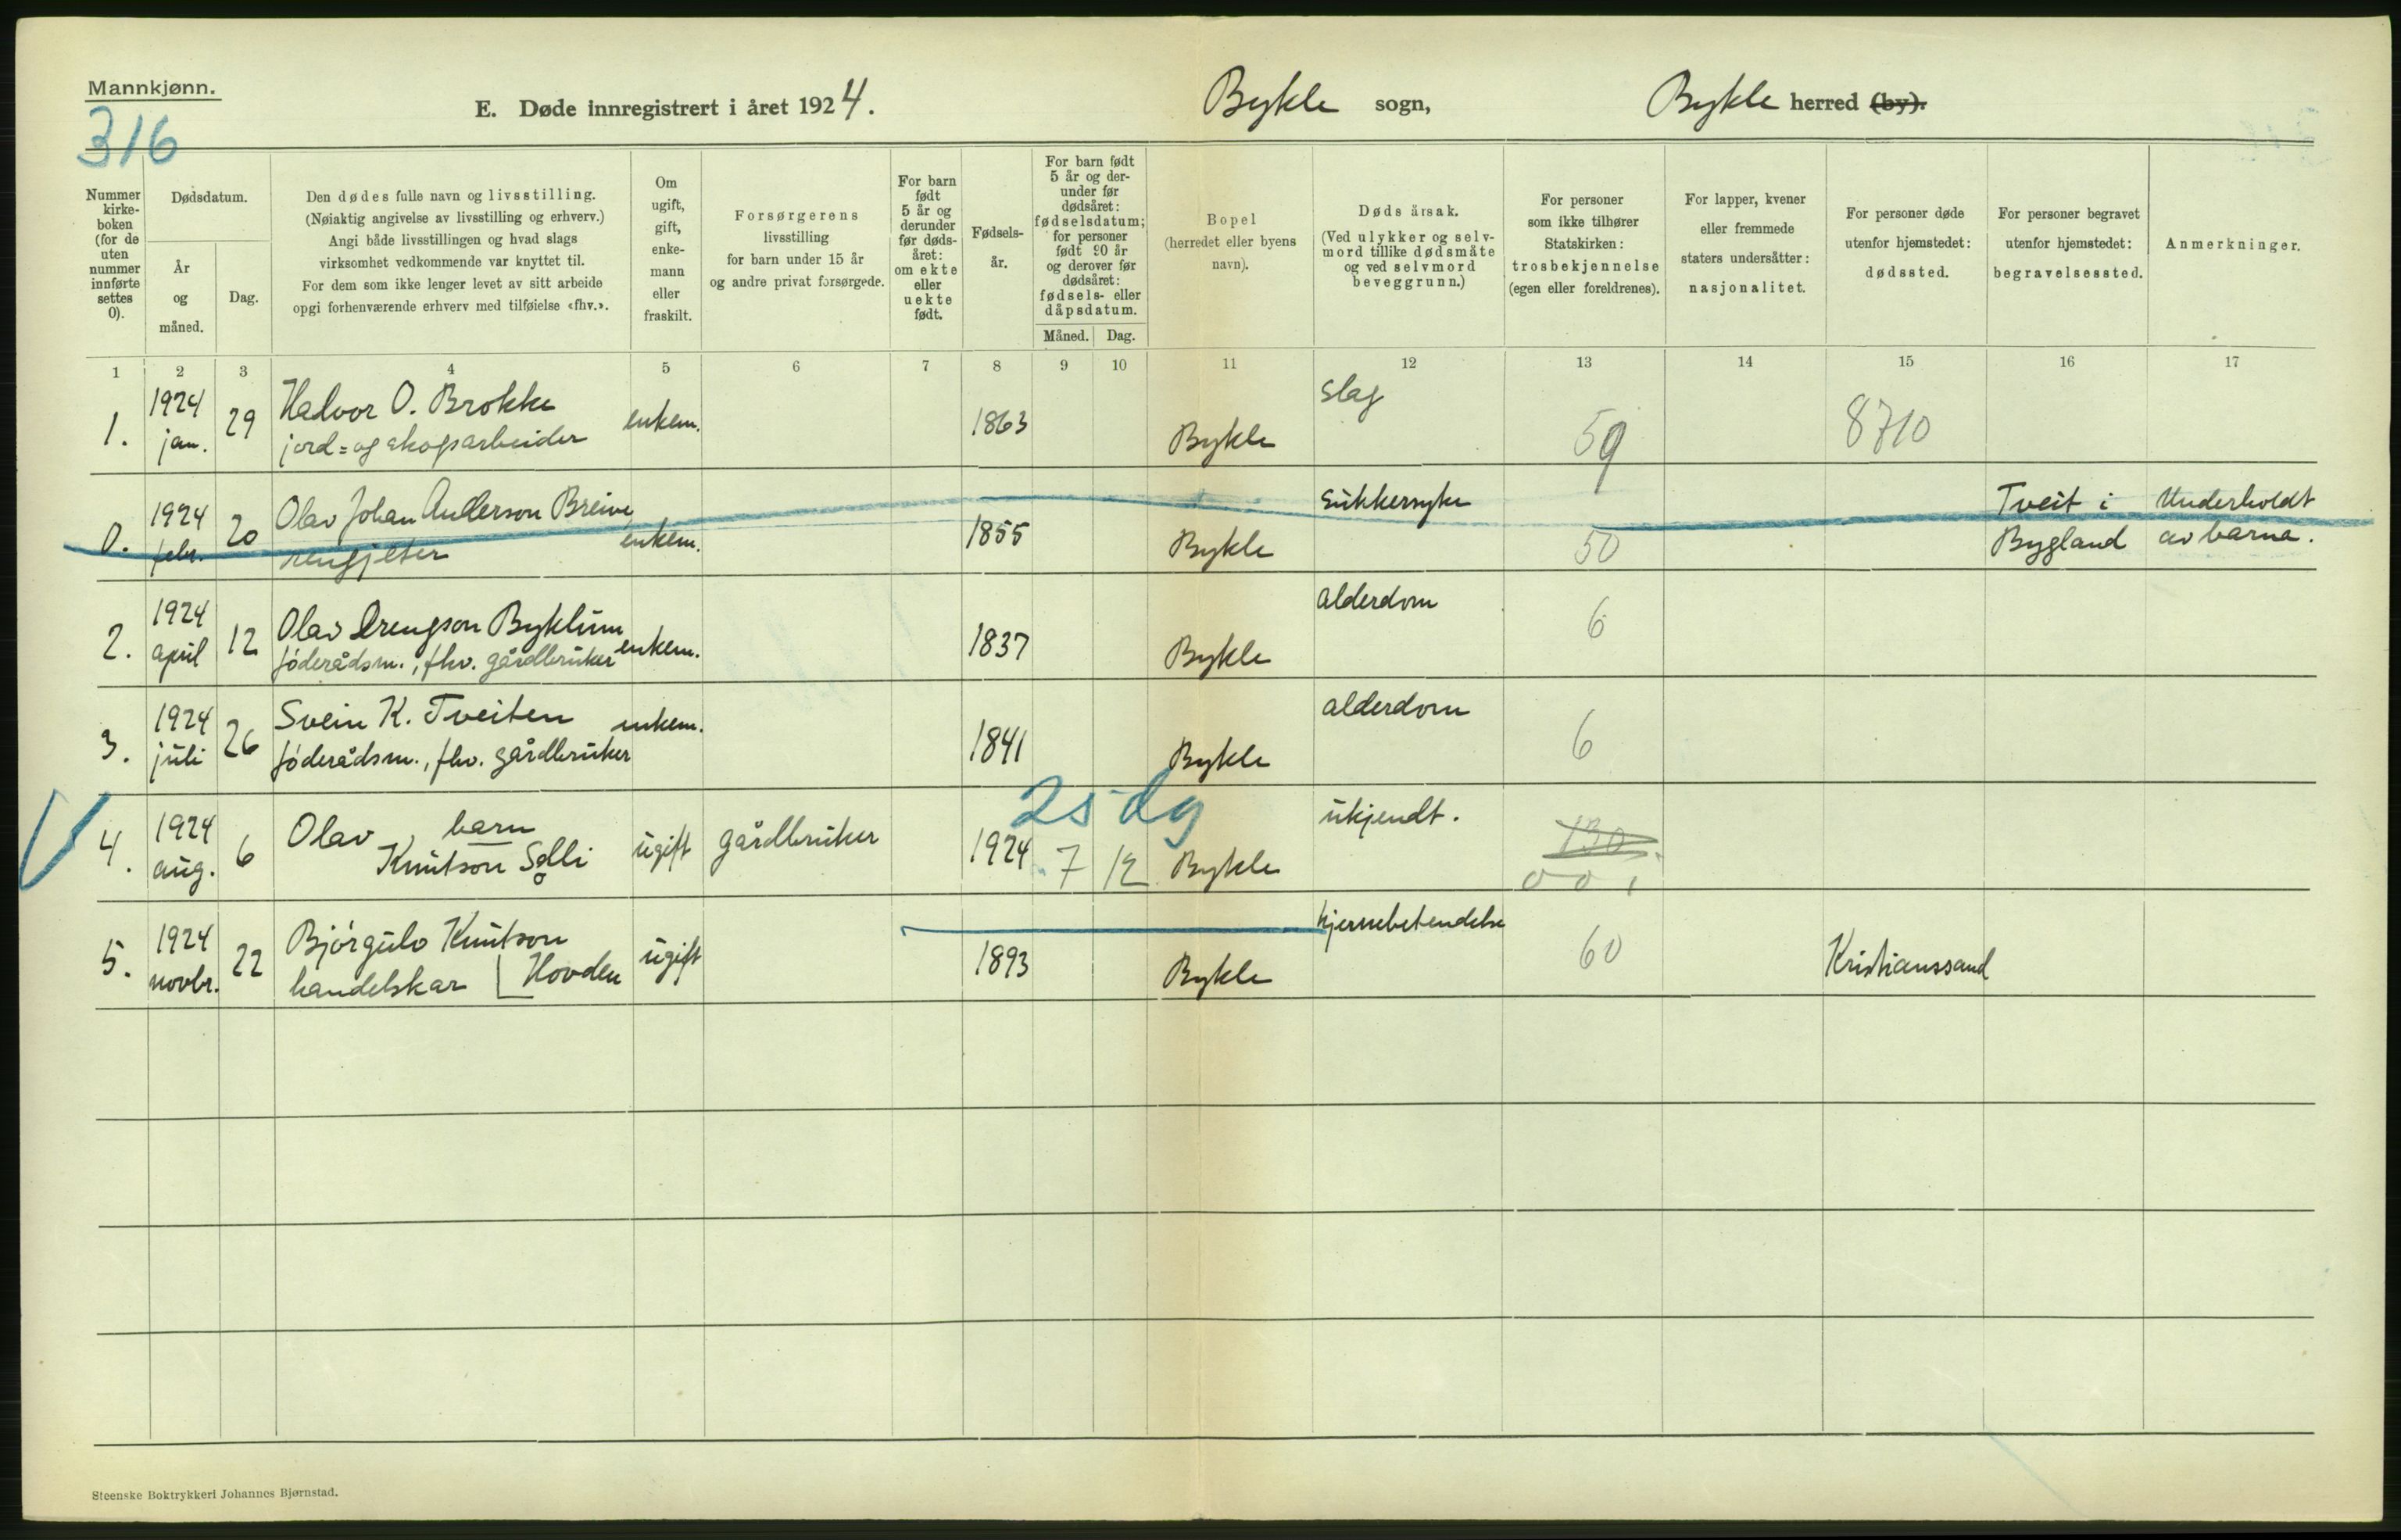 Mannkjønn.
316
E. Døde innregistrert i året 1924. Bykle sogn, Bykle herred (by).
Nummer kirke-boken (for de uten nummer innførte settes 0).
Dødsdatum.
År og måned.
Dag.
Den dødes fulle navn og livsstilling.
(Nøiaktig angivelse av livsstilling og erhverv.)
Angi både livsstillingen og hvad slags
virksomhet vedkommende var knyttet til.
For dem som ikke lenger levet av sitt arbeide
opgi forhenværende erhverv med tilføielse «fhv.».
Om ugift, gift, enke-mann eller fraskilt.
Forsørgerens
livsstilling
for barn under 15 år
og andre privat forsørgede.
For barn født 5 år og derunder før døds-året: om ekte eller uekte født.
Fødsels-år.
For barn født 5 år og der-under før dødsåret: fødselsdatum; for personer født 90 år og derover før dødsåret: fødsels- eller dåpsdatum.
Måned. Dag.
Bopel
(herredet eller byens
navn).
Døds årsak.
(Ved ulykker og selv-
mord tillike dødsmåte
og ved selvmord
beveggrunn.)
For personer
som ikke tilhører
Statskirken:
trosbekjennelse
(egen eller foreldrenes).
For lapper, kvener
eller fremmede
staters undersåtter:
nasjonalitet.
For personer døde
utenfor hjemstedet:
dødssted.
For personer begravet
utenfor hjemstedet:
begravelsessted.
Anmerkninger.
1 2 3 4 5 6 7 8 9 10 11 12 13 14 15 16 17
1. 1924 jan. 29 Halvor O. Brokke enkem. 1863 Bykle slag 59 8710
jord= og skogsarbeider
0. 1924 febr. 20 Olav Johan Anderson Breive enkem. 1855 Bykle sukkersyke 50 Tveit i Bygland Underholdt av barna.
rengjeter
2. 1924 april 12 Olav Drengson Byklum enkem. 1837 Bykle alderdom 6
föderådsm., fhv. gårdbruker
3. 1924 juli 26 Svein K. Tveiten enkem. 1841 Bykle alderdom 6
föderådsm., fhv. gårdbruker
25 dg
4. 1924 aug. 6 Olav, barn ugift gårdbruker 1924 7 12 Bykle ukjendt. 130 00 1
Knutson Solli
5. 1924 novbr. 22 Bjørgulv Knutson ugift 1893 Bykle hjernebetendelse 60 Kristianssand
handelskar Hovden
Steenske Boktrykkeri Johannes Bjørnstad.